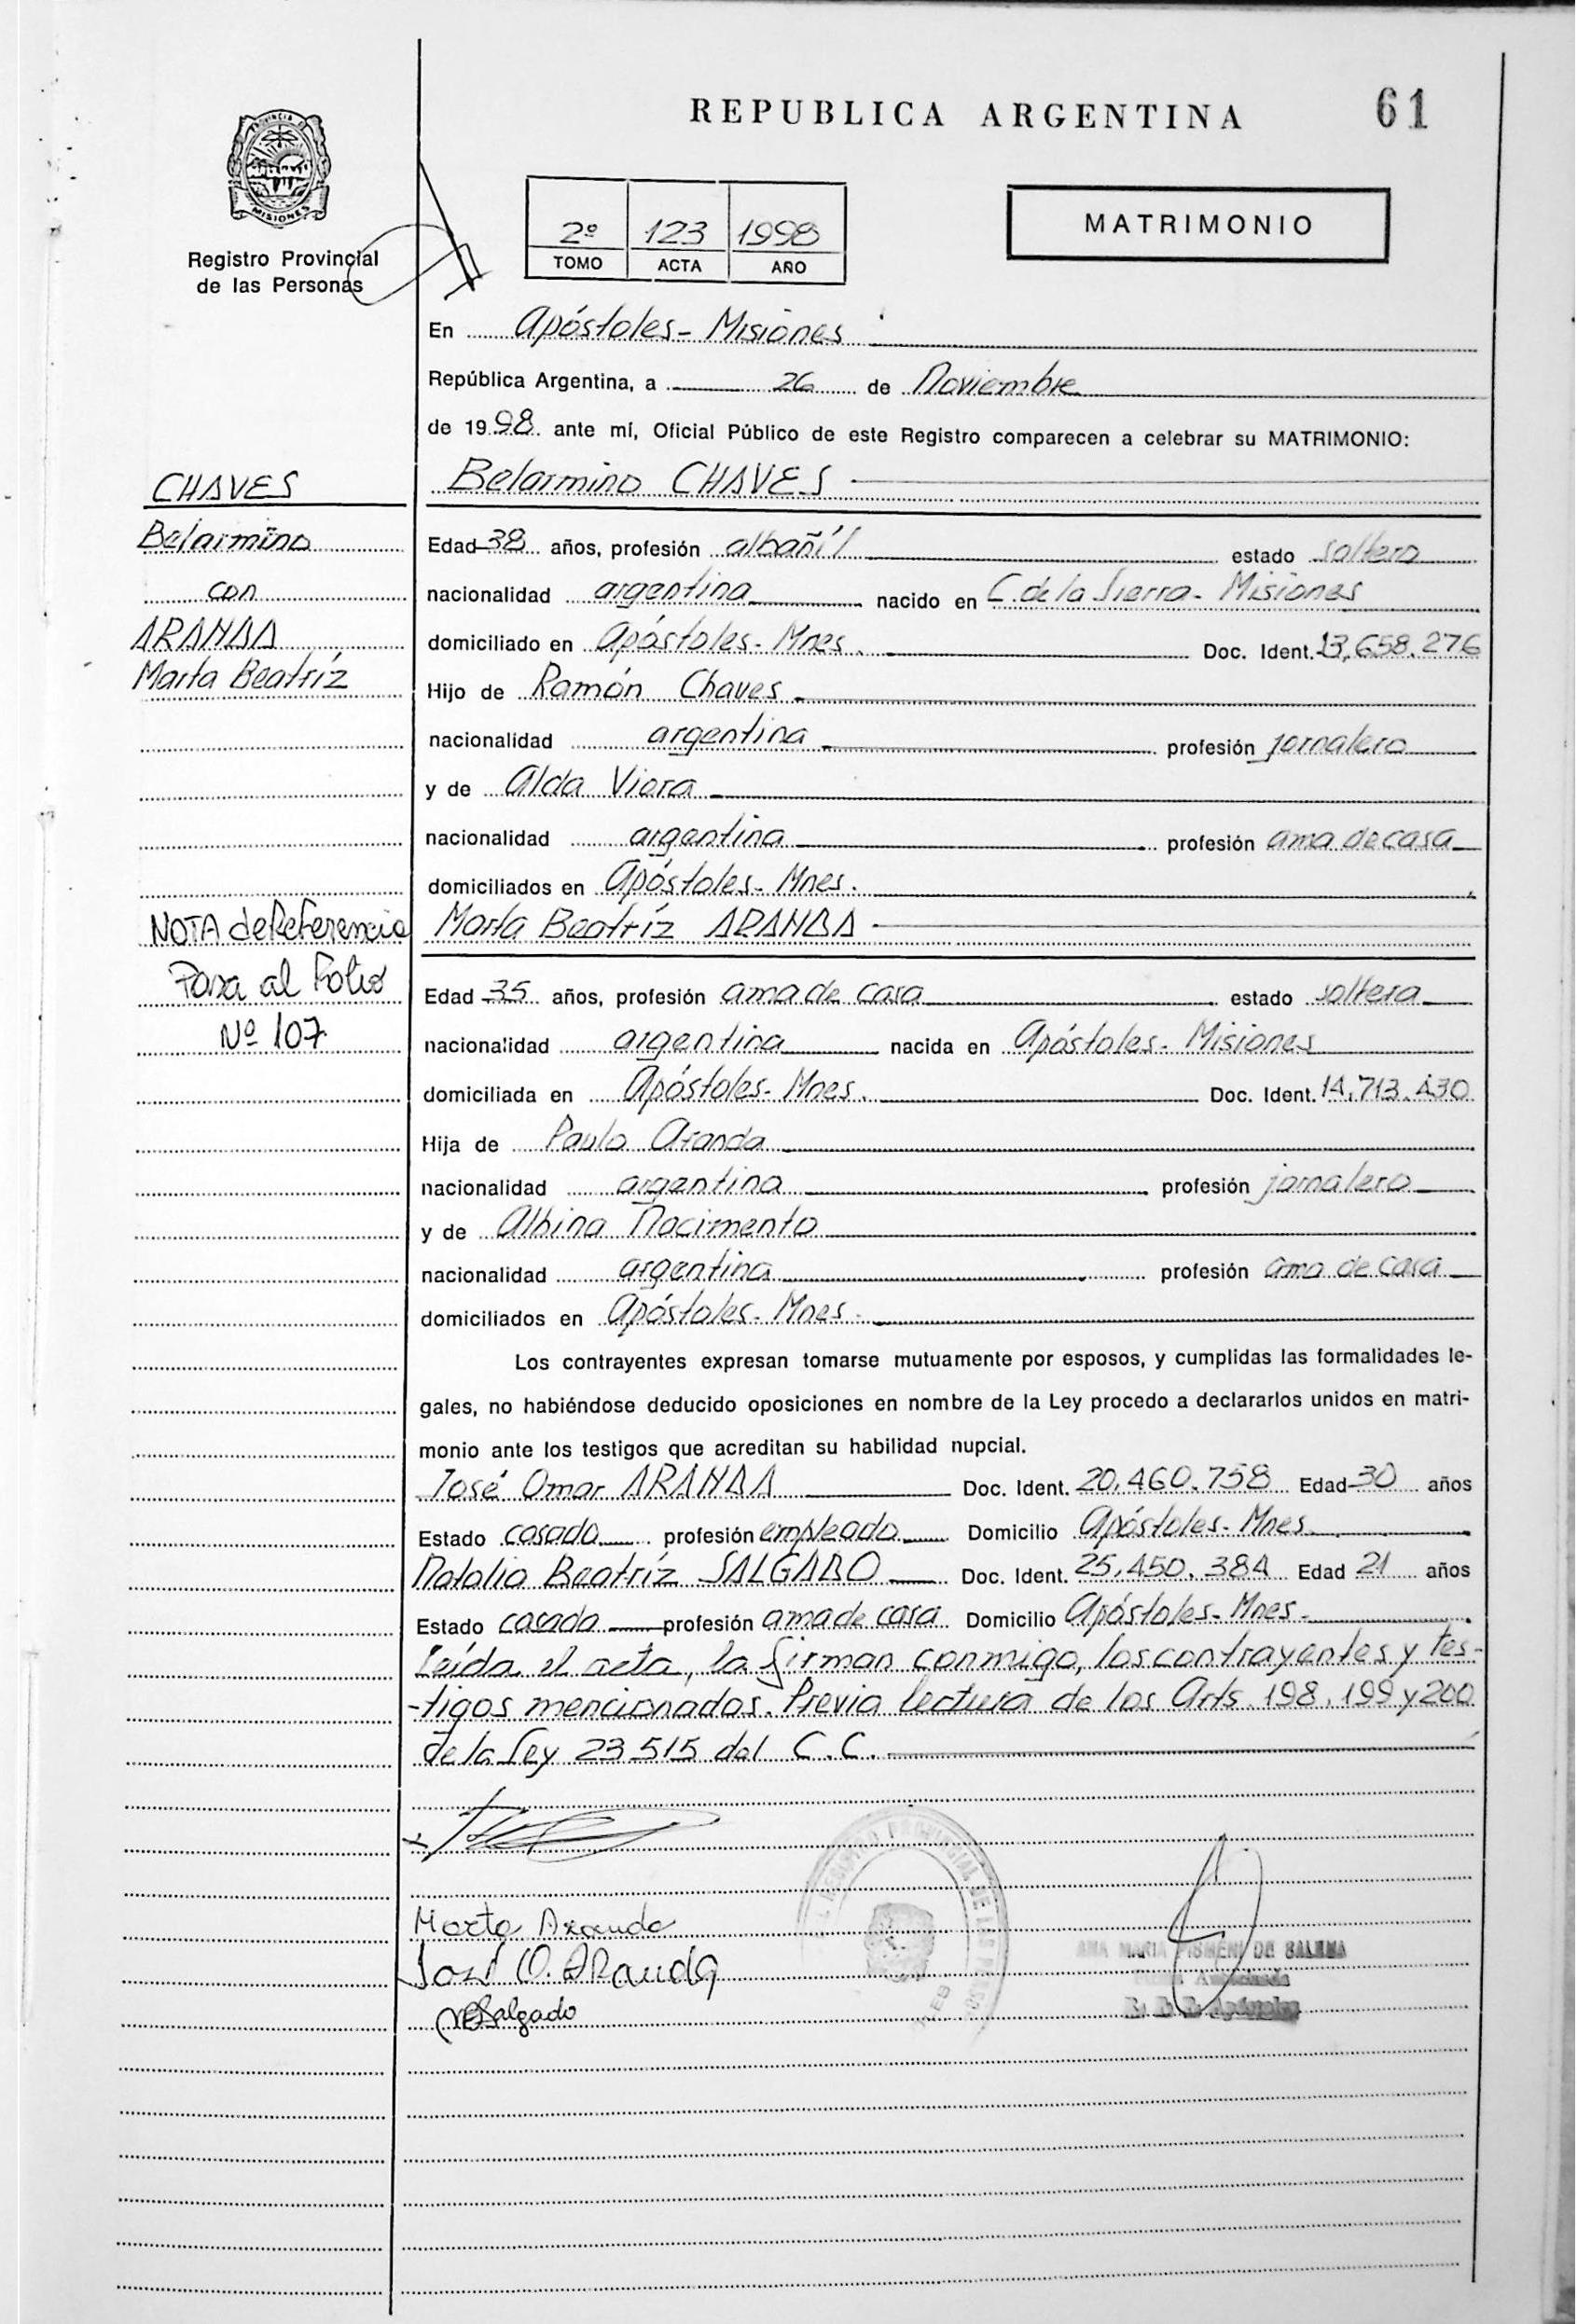 REPUBLICA ARGENTINA
61
PROVINCIA DE
MISIONES
Registro Provincial
de las Personas
2º 123 1998
TOMO ACTA AÑO
MATRIMONIO
En Apóstoles-Misiones
República Argentina, a 26 de Noviembre
de 1998 ante mí, Oficial Público de este Registro comparecen a celebrar su MATRIMONIO:
CHAVES
Belarmino
con
ARANDA
Marta Beatríz
Belarmino CHAVES
Edad 38 años, profesión albañíl estado soltero
nacionalidad argentina nacido en C. de la Sierra- Misiones
domiciliado en Apóstoles- Mnes. Doc. Ident. 13,658.276
Hijo de Ramón Chaves
nacionalidad argentina profesión jornalero
y de Alda Viera
nacionalidad argentina profesión ama de casa
domiciliados en Apóstoles- Mnes.
NOTA de Referencia
Pasa al Folio
Nº 107
Marta Beatríz ARANDA
Edad 35 años, profesión ama de casa estado soltera
nacionalidad argentina nacida en Apóstoles- Misiones
domiciliada en Apóstoles- Mnes. Doc. Ident. 14,713.430
Hija de Paulo Aranda
nacionalidad argentina profesión jornalero
y de Albina Nacimento
nacionalidad argentina profesión ama de casa
domiciliados en Apóstoles- Mnes.
Los contrayentes expresan tomarse mutuamente por esposos, y cumplidas las formalidades le-
gales, no habiéndose deducido oposiciones en nombre de la Ley procedo a declararlos unidos en matri-
monio ante los testigos que acreditan su habilidad nupcial.
José Omar ARANDA Doc. Ident. 20,460.758 Edad 30 años
Estado casado profesión empleado Domicilio Apóstoles- Mnes.
Natalia Beatríz SALGADO Doc. Ident. 25,450.384 Edad 21 años
Estado casada profesión ama de casa Domicilio Apóstoles- Mnes-
Leída el acta, la firman conmigo, los contrayentes y tes-
-tigos mencionados. Previa lectura de los Arts. 198, 199 y 200
de la Ley 23515 del C.C.
REGISTRO PROVINCIAL DE LAS PERSO
Marta Aranda
José O. ARanda
Salgado
ANA MARIA DE